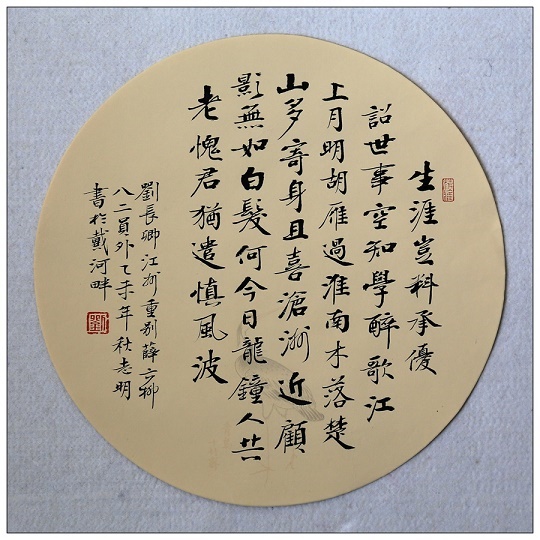 生涯豈料承優
詔世事空知學醉歌江
上月明胡雁過淮南木落楚
山多寄身且喜滄洲近顧
影無如白髮何今日龍鐘人共
老愧君猶遣慎風波
劉長卿江州重別薛六柳
八二員外乙未年秋志明
書於戴河畔
劉